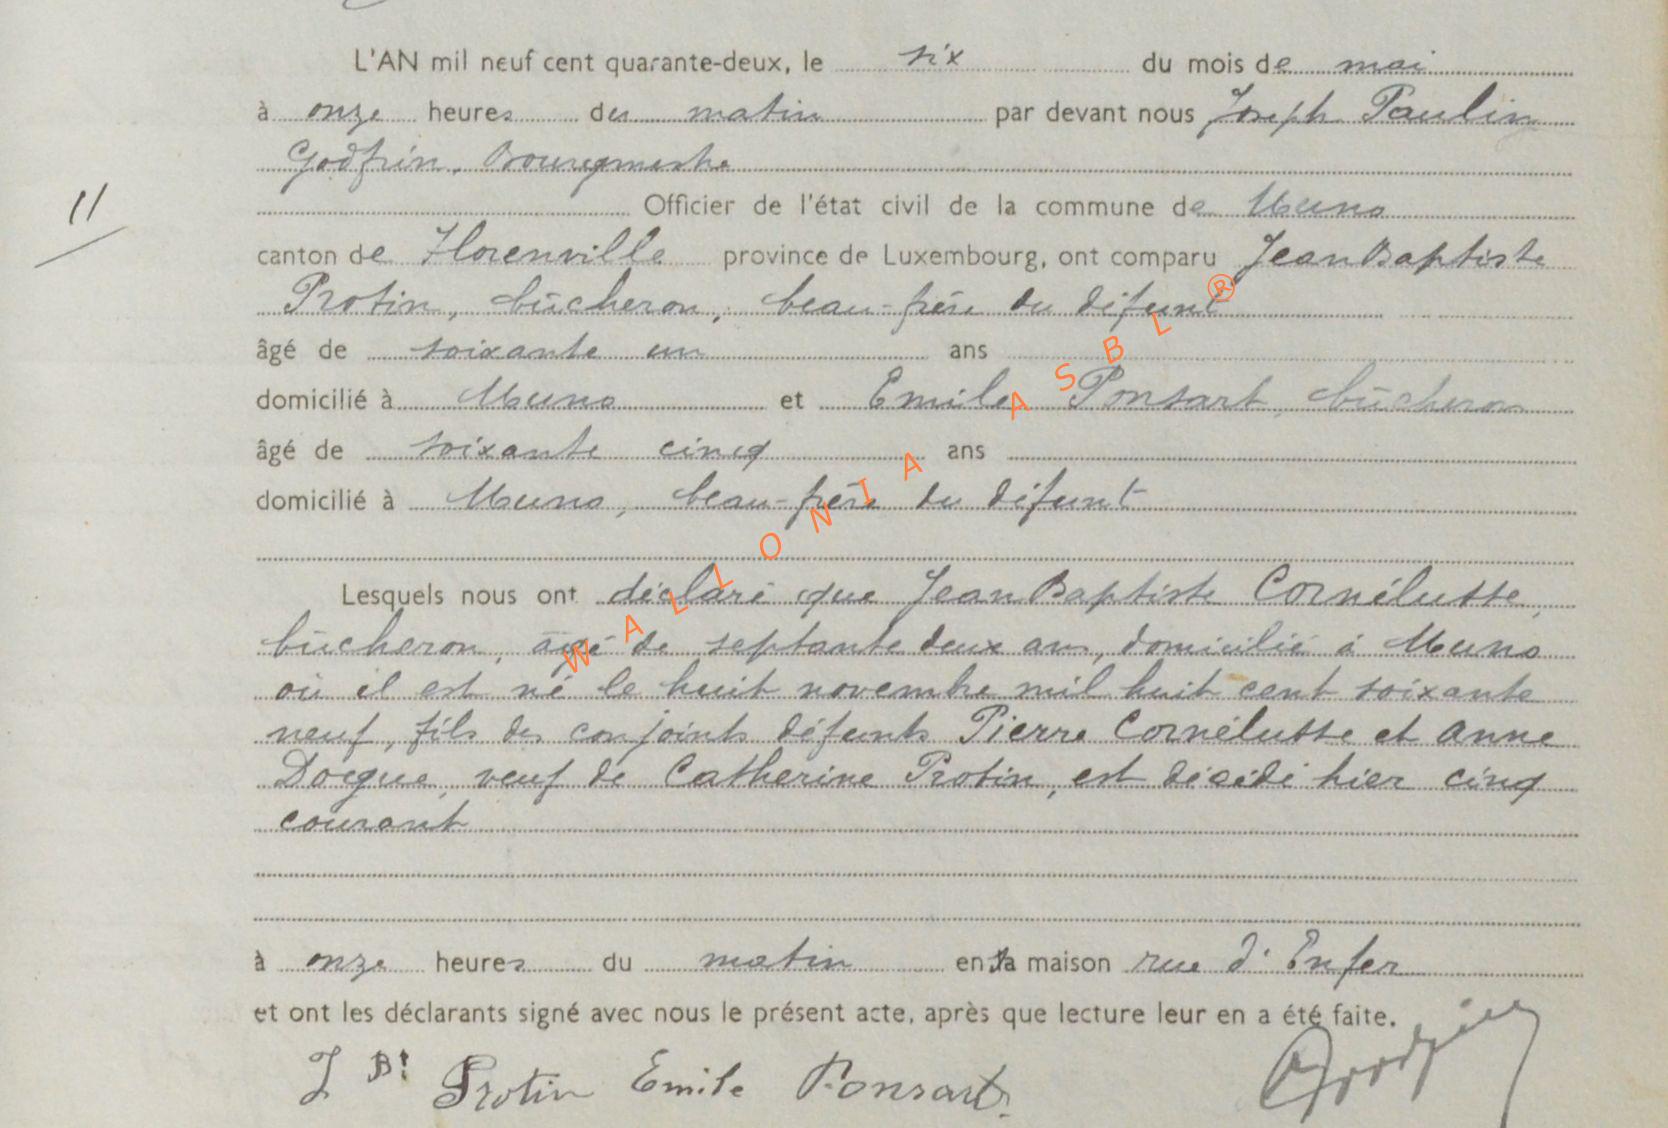 L'AN mil neuf cent quarante-deux, le six du mois de mai
à onze heures du matin par devant nous Joseph Paulin
Godfrin, Bourgmestre
11
Officier de l'état civil de la commune de Muno
canton de Florenville province de Luxembourg, ont comparu Jean Baptiste
Protin, bûcheron, beau-frère du défunt
âgé de soixante un ans
domicilié à Muno et Emile Ponsart, bûcheron
âgé de soixante cinq ans
domicilié à Muno, beau-frère du défunt
Lesquels nous ont déclaré que Jean Baptiste Cornélusse,
bûcheron, âgé de septante deux ans, domicilié à Muno
où il est né le huit novembre mil huit cent soixante
neuf, fils des conjoints défunts Pierre Cornélusse et Anne
Docque, veuf de Catherine Protin, est décédé hier cinq
courant
à onze heures du matin en sa maison rue d'Enfer
et ont les déclarants signé avec nous le présent acte, après que lecture leur en a été faite.
J Bt Protin Emile Ponsart
WALLONIA ASBL ®